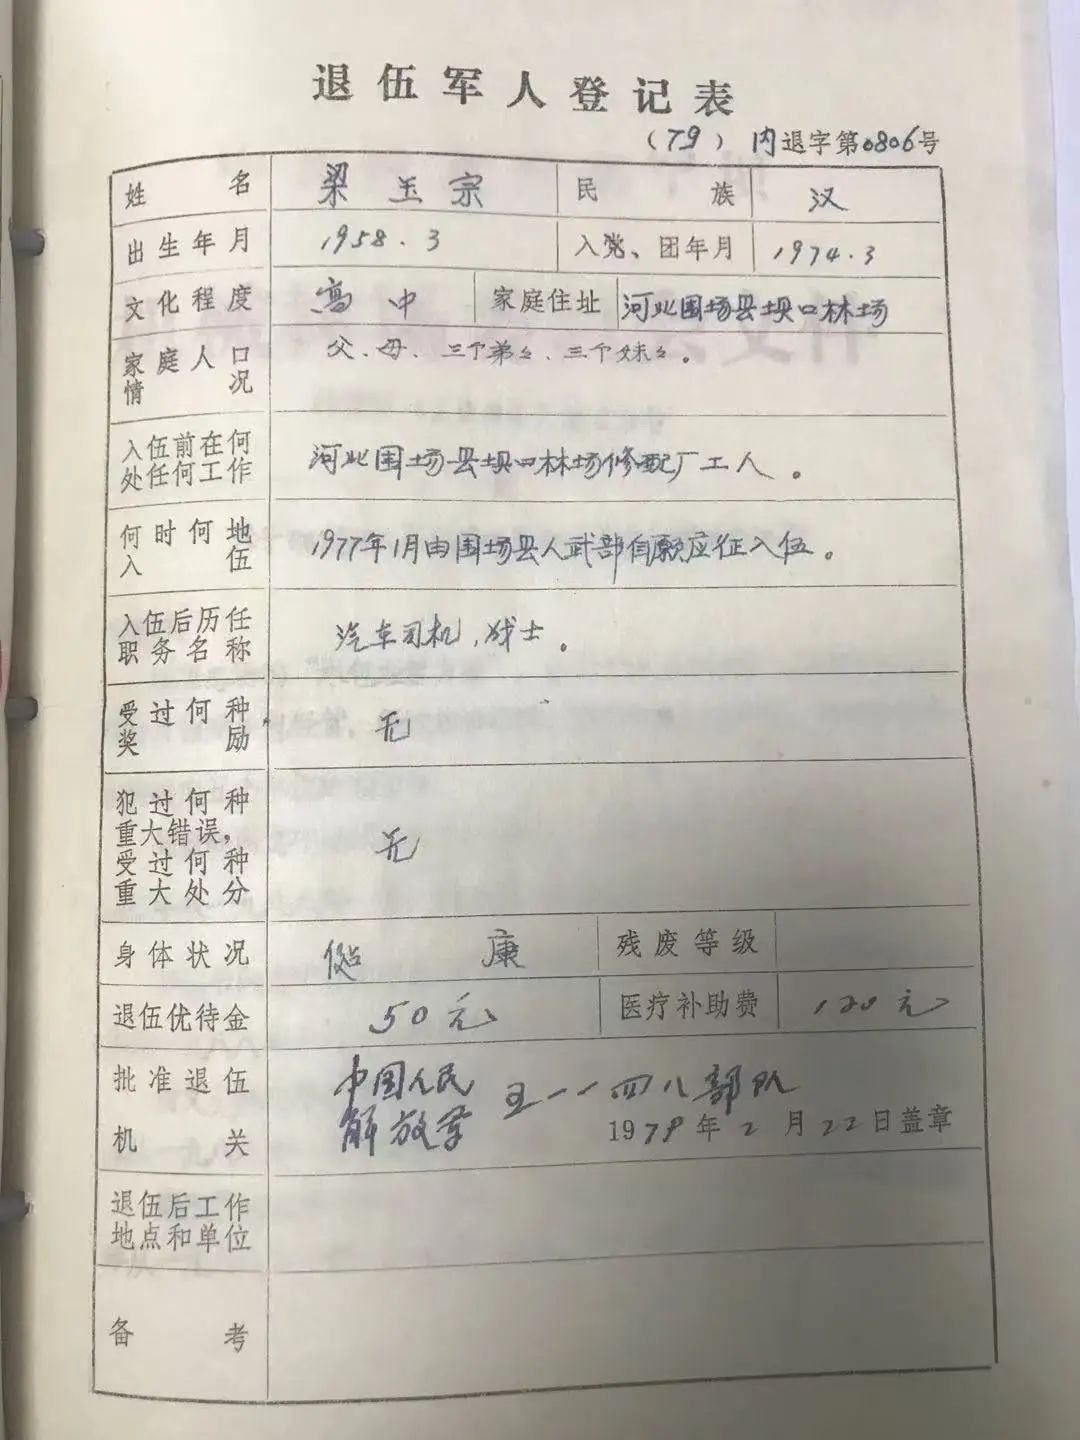 退伍军人登记表
（79）内退字第0806号
姓名 梁玉宗 民族 汉
出生年月 1958.3 入党、团年月 1974.3
文化程度 高中 家庭住址 河北围场县坝口林场
家庭人口情况 父、母、三个弟々、三个妹々。
入伍前在何处任何工作 河北围场县坝口林场修配厂工人。
何时何地入伍 1977年1月由围场县人武部自愿应征入伍。
入伍后历任职务名称 汽车司机，战士。
受过何种奖励 无
犯过何种重大错误，受过何种重大处分 无
身体状况 健康 残废等级
退伍优待金 50元 医疗补助费 120元
批准退伍机关 中国人民解放军五一一四八部队
1979年2月22日盖章
退伍后工作地点和单位
备考